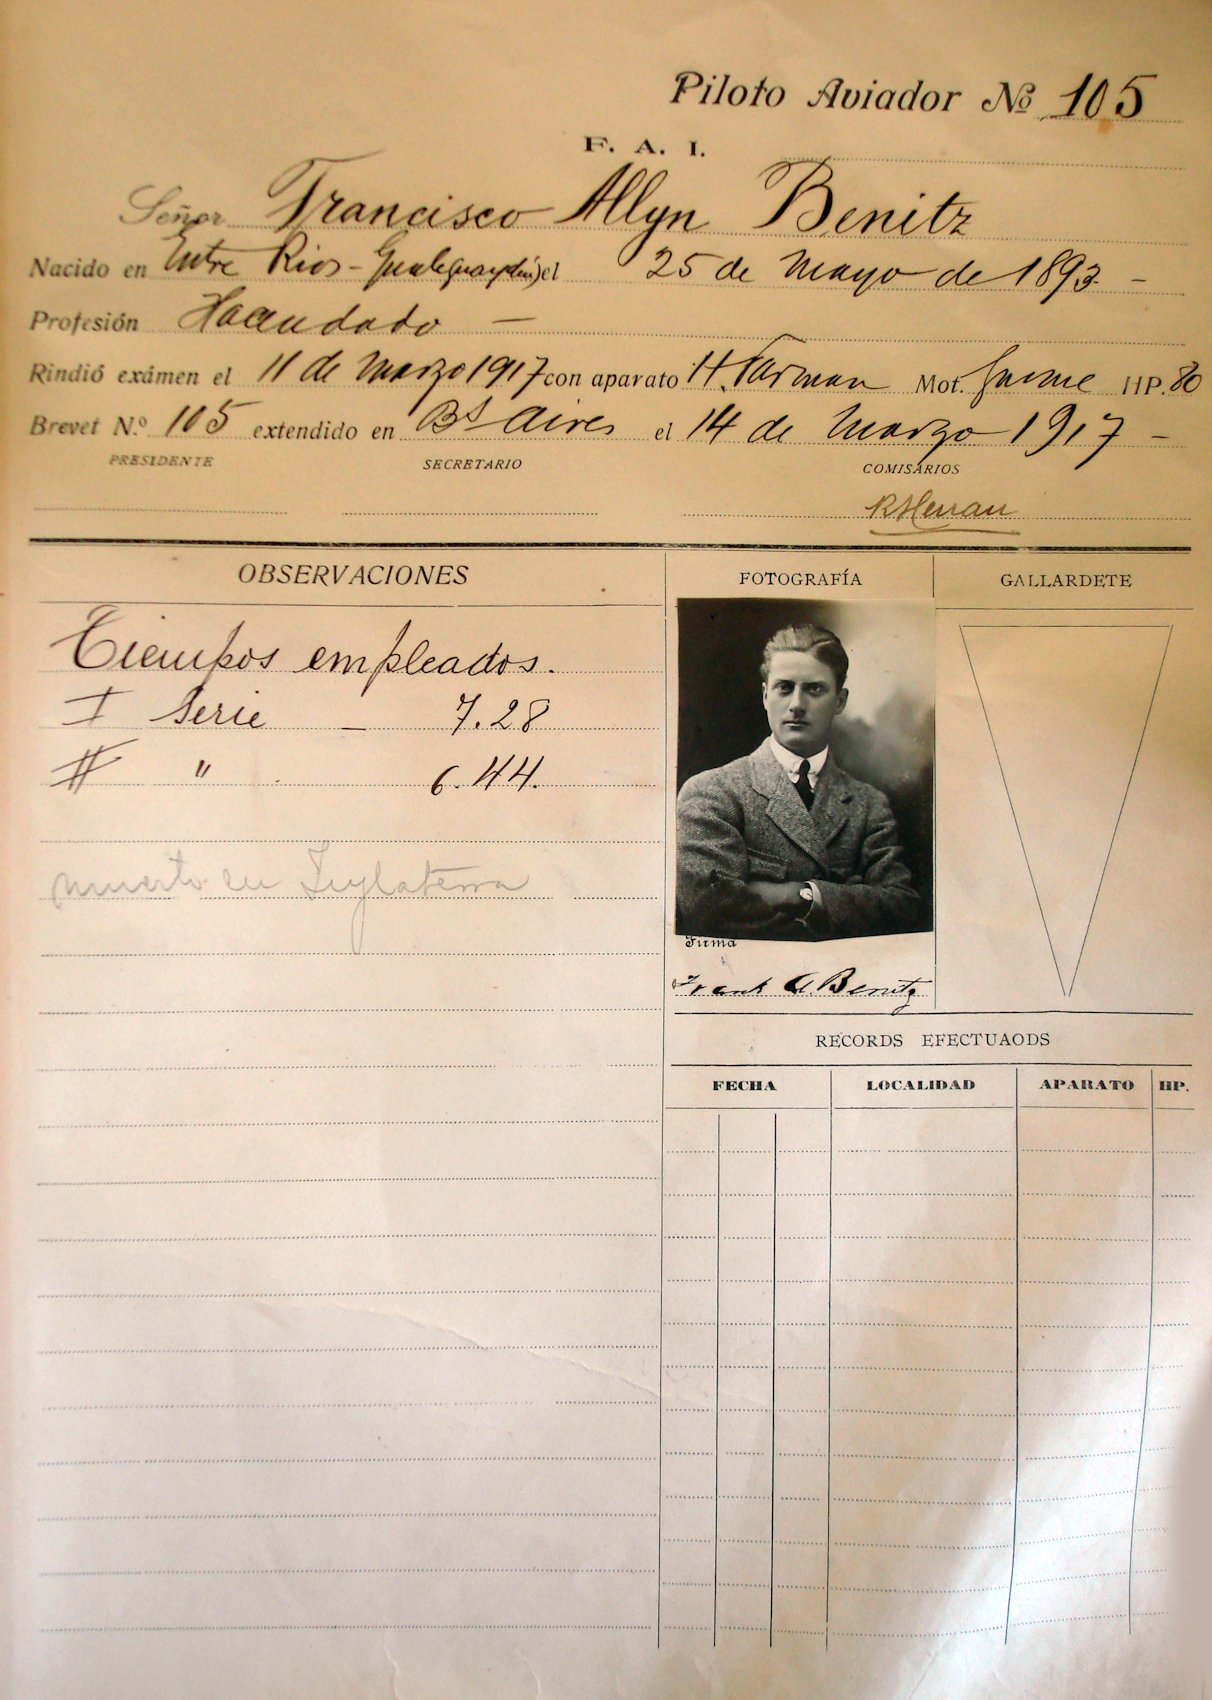 Piloto Aviador Nº 105
F. A. I.
Señor Francisco Allyn Benitz
Nacido en Entre Rios - (Gualeguaychú) el 25 de Mayo de 1893 -
Profesión Hacendado -
Rindió exámen el 11 de Marzo 1917 con aparato H. Farman Mot. Gnome HP. 80
Brevet N.º 105 extendido en Bs Aires el 14 de Marzo 1917 -
PRESIDENTE SECRETARIO COMISARIOS
OBSERVACIONES
FOTOGRAFÍA
GALLARDETE
Tiempos empleados.
I Serie - 7.28
II " . 6.44.
muerto en Inglaterra
Firma
Frank A. Benitz
RECORDS EFECTUAODS
FECHA LOCALIDAD APARATO HP.